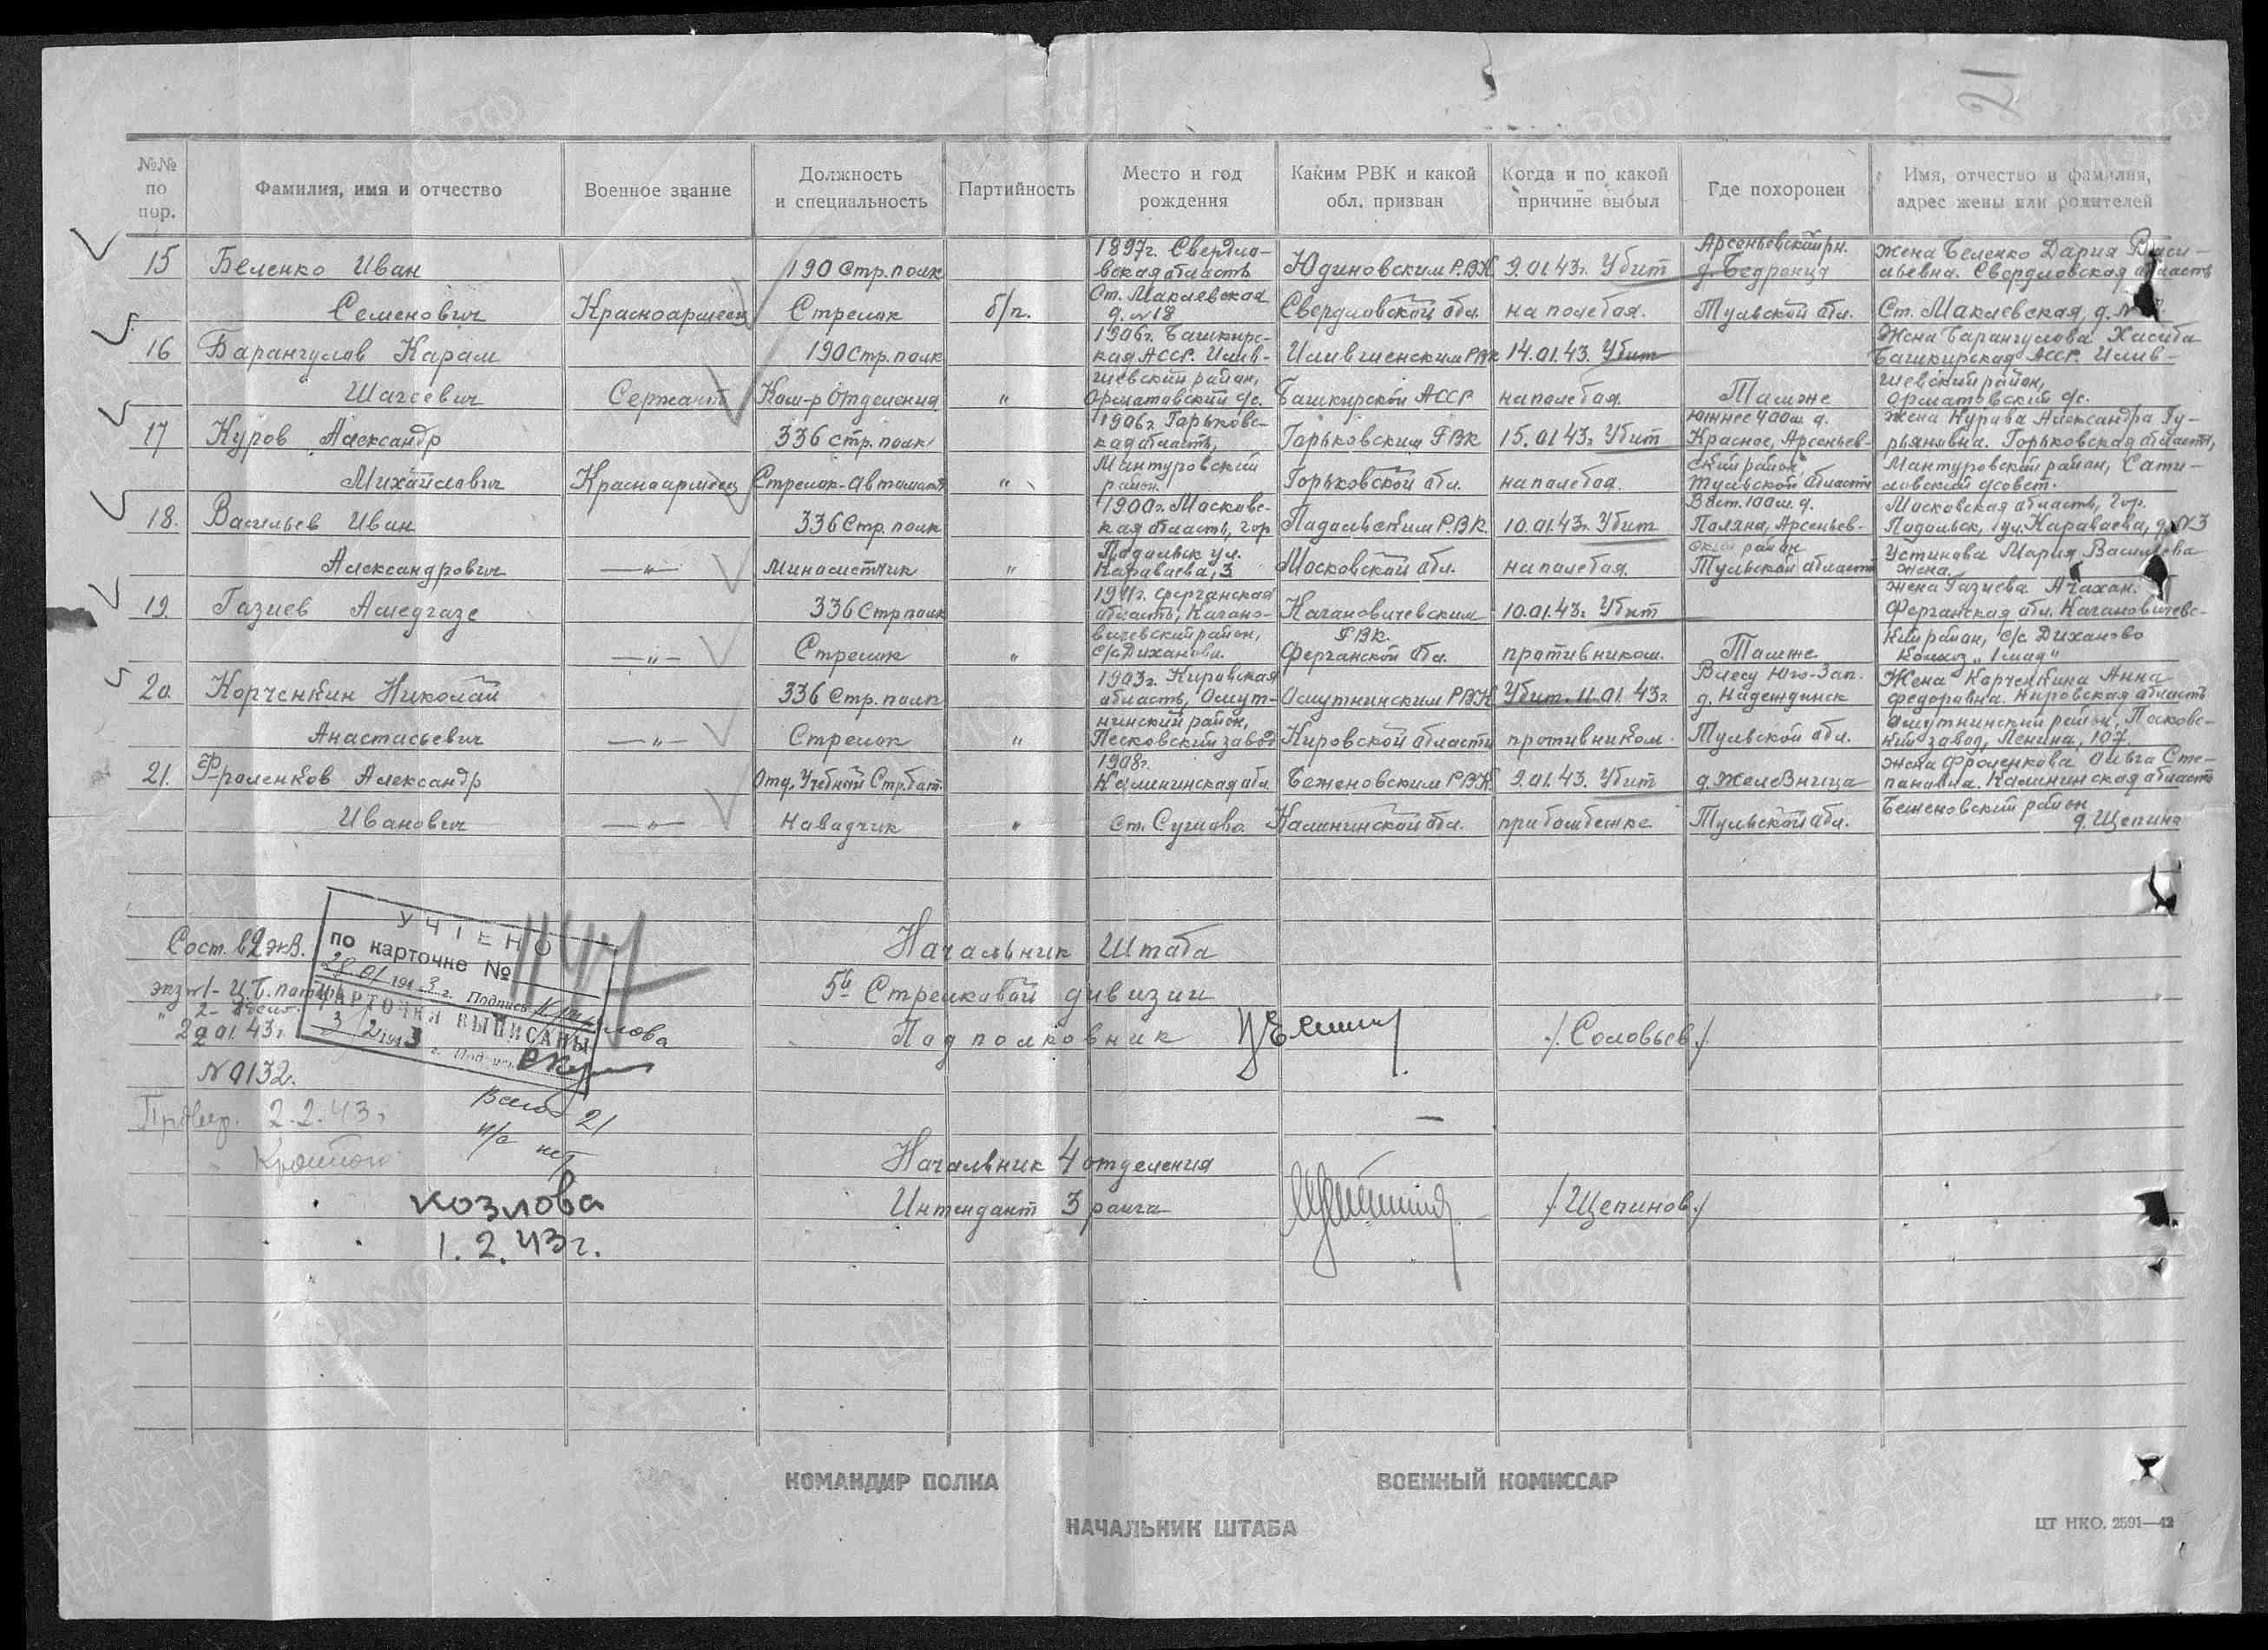 21
№№ по пор.
Фамилия, имя и отчество
Военное звание
Должность и специальность
Партийность
Место и год рождения
Каким РВК и какой обл. призван
Когда и по какой причине выбыл
Где похоронен
Имя, отчество и фамилия, адрес жены или родителей
15 Беленко Иван Семенович
Красноармеец
190 Стр. полк Стрелок
б/п.
1897г. Свердло-
вская область
Ст. Маклевская
д. №18
Юдиновским Р.В.К.
Свердловской обл.
9.01.43г. Убит
на поле боя.
Арсеньевский рн.
д. Бедринца
Тульской обл.
Жена Беленко Дария Васи-
льевна. Свердловская область
Ст. Маклевская, д. №
16 Барангулов Карам Шагеевич
Сержант
190 Стр. полк
Ком-р Отделения
"
1906г. Башкирс-
кая АССР. Илив-
шевский район,
Арматовский с/с.
Илившенским РВК
Башкирской АССР
14.01.43. Убит
на поле боя.
Там же
Жена Барангулова Хасиба
Башкирская АССР. Илив-
шевский район,
Арматовский с/с.
17 Куров Александр Михайлович
Красноармеец
336 стр. полк
Стрелок-Автоматч
"
1906г. Горьковс-
кая область,
Мантуровский
район.
Горьковским РВК
Горьковской обл.
15.01.43г. Убит
на поле боя.
Южнее 400м. д.
Красное, Арсеньев-
ский район,
Тульской области
Жена Курова Александра Гу-
рьяновна. Горьковская область,
Мантуровский район, Сати-
ловский с/совет.
18. Васильев Иван Александрович
—"—
336 Стр. полк
Минометчик
"
1900г. Московс-
кая область, гор
Подольск ул.
Караваева, 3
Подольским Р.В.К.
Московской обл.
10.01.43г. Убит
на поле боя.
Вост. 100м. д.
Поляна, Арсеньев-
ский район
Тульской области
Московская область, Гор.
Подольск, ул. Караваева, д. №3
Устинова Мария Васильева
жена.
19. Газиев Амедгазе
—"—
336 Стр полк
Стрелок
"
1911г. Ферганская
область, Кагано-
вичевский район,
с/с Диханови.
Кагановичевским
РВК.
Ферганской обл.
10.01.43г. Убит
противником.
Там же
Жена Газиева Ачахан.
Ферганская обл. Кагановичевс-
кий район, с/с Диханово
Колхоз „1 мая"
20. Корченкин Николай Анастасьевич
—"—
336 Стр. полк
Стрелок
"
1903г. Кировская
область, Омут-
нинский район,
Песковский завод
Омутнинским РВК
Кировской области
Убит. 11.01.43г.
противником.
В лесу Юго-Зап.
д. Надеждинск
Тульской обл.
Жена Корченкина Анна
Федоровна. Кировская область
Омутнинский район, Песковс-
кий завод, Ленина, 107.
21. Фроленков Александр Иванович
—"—
Отд. Учебный Стр. бат.
Наводчик
"
1908г.
Калининская обл.
Ст. Сушово
Беженовским РВК.
Калининской обл.
9.01.43. Убит
при бомбежке
д. Железница
Тульской обл.
Жена Фроленкова Ольга Сте-
пановна. Калининская область
Беженовский район
д. Щепина
Сост. в 2 экз.
экз №1 - Ц.Б. потерь
" 2 - дело.
29 01 43г.
№0132.
УЧТЕНО
по карточке № 1147
28.01 1943 г. Подпись
КАРТОЧКА ВЫПИСАНЫ
3/2 1943 г. Подпись
Всего 21
н/с нет
Провер. 2.2.43г
Козлова
1.2.43г.
Начальник Штаба
5й Стрелковой дивизии
Подполковник /Соловьев/
Начальник 4 отделения
Интендант 3 ранга /Щепинов/
КОМАНДИР ПОЛКА
ВОЕННЫЙ КОМИССАР
НАЧАЛЬНИК ШТАБА
ЦТ НКО. 2591—42